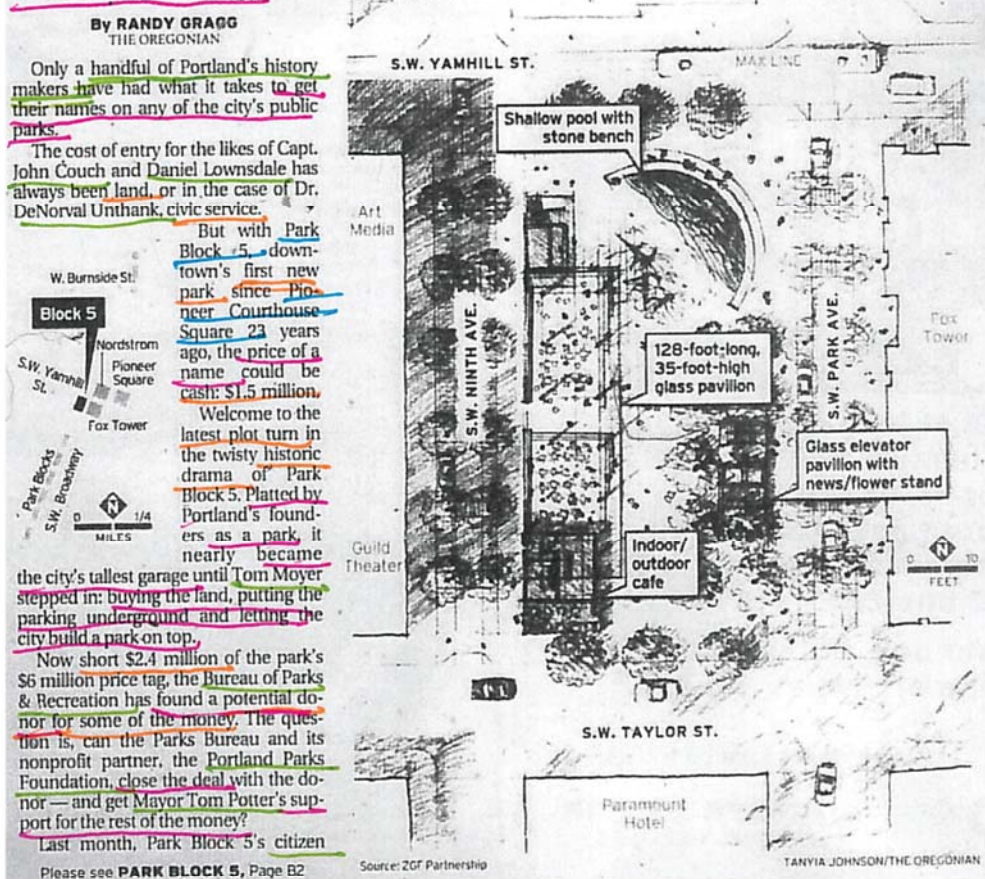 By RANDY GRAGG
THE OREGONIAN
Only a handful of Portland's history
makers have had what it takes to get
their names on any of the city's public
parks.
The cost of entry for the likes of Capt.
John Couch and Daniel Lownsdale has
always been land, or in the case of Dr.
DeNorval Unthank, civic service.
But with Park
Block 5, down-
town's first new
park since Pio-
neer Courthouse
Square 23 years
ago, the price of a
name could be
cash: $1.5 million.
Welcome to the
latest plot turn in
the twisty historic
drama of Park
Block 5. Platted by
Portland's found-
ers as a park, it
nearly became
the city's tallest garage until Tom Moyer
stepped in: buying the land, putting the
parking underground and letting the
city build a park on top.
Now short $2.4 million of the park's
$6 million price tag, the Bureau of Parks
& Recreation has found a potential do-
nor for some of the money. The ques-
tion is, can the Parks Bureau and its
nonprofit partner, the Portland Parks
Foundation, close the deal with the do-
nor — and get Mayor Tom Potter's sup-
port for the rest of the money?
Last month, Park Block 5's citizen
Please see PARK BLOCK 5, Page B2
W. Burnside St.
Block 5
Nordstrom
S.W. Yamhill
St.
Pioneer
Square
Fox Tower
Park Blocks
S.W. Broadway
N
0 1/4
MILES
S.W. YAMHILL ST.
MAX LINE
Shallow pool with
stone bench
Art
Media
S.W. NINTH AVE.
128-foot-long,
35-foot-high
glass pavilion
S.W. PARK AVE.
Fox
Tower
Glass elevator
pavilion with
news/flower stand
Guild
Theater
Indoor/
outdoor
cafe
N
0 10
FEET
S.W. TAYLOR ST.
Paramount
Hotel
Source: ZGF Partnership
TANYIA JOHNSON/THE OREGONIAN